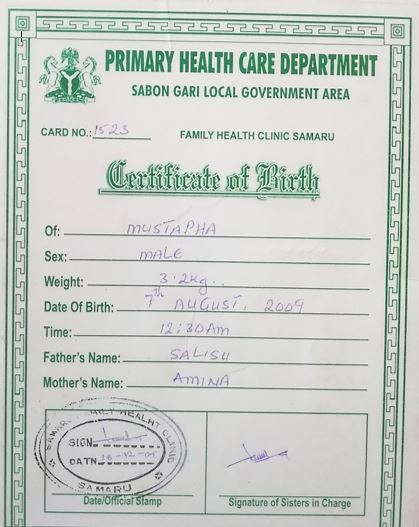 PRIMARY HEALTH CARE DEPARTMENT
SABON GARI LOCAL GOVERNMENT AREA
CARD NO.: 1523 FAMILY HEALTH CLINIC SAMARU
Certificate of Birth
Of: MUSTAPHA
Sex: MALE
Weight: 3.2kg..
Date Of Birth: 7th AUGUST, 2009
Time: 12:30AM
Father's Name: SALISU
Mother's Name: AMINA
FAMILY HEALHT CLINIC
SIGN
DATN
SAMARU
Date/Official Stamp Signature of Sisters in Charge